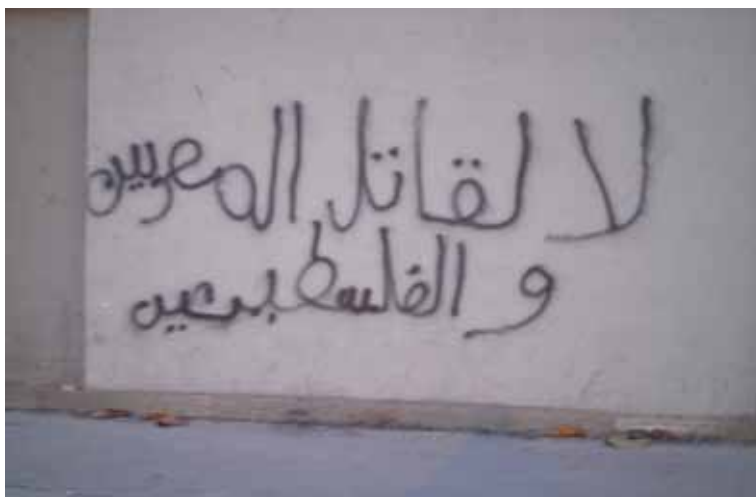 لا لقاتل المصريين
و الفلسطينيين